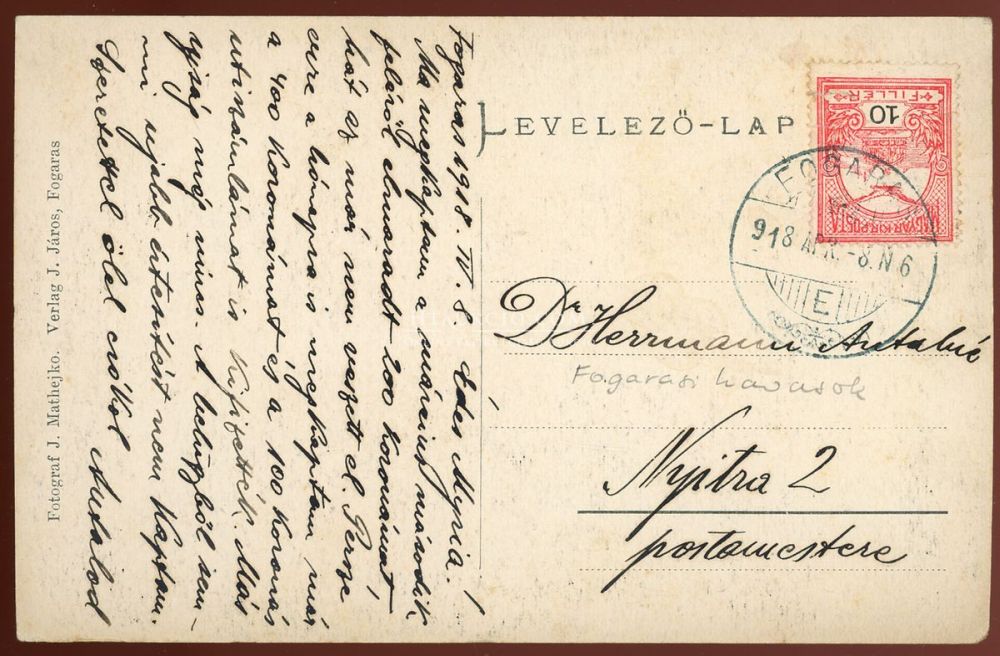 Fogaras 1918. IV. 8. Édes Myria!
Ma megkaptam a március második
feléről elmaradt 200 koronámat
hát az már nem veszett el. Persze
erre a hónapra is megkaptam már
a 400 koronámat és a 100 koronás
utiszámlámat is kifizették. Más
ujság még nincs. A beluzból sem-
mi ujabb értesítést nem kaptam.
Szeretettel ölel csókol Antalod
Fotograf J. Mathejko. Verlag J. Járos, Fogaras
LEVELEZŐ-LAP
10
FILLÉR
MAGYAR KIR. POSTA
FOGARAS
918 APR. -8. N 6
E
Dr Herrmann Antalné
Fogarasi havasok
Nyitra 2
postamestere